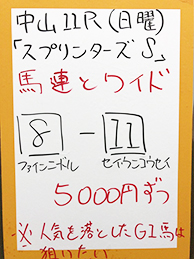 中山11R(日曜)
「スプリンターズS」
馬連とワイド
8-11
ファインニードル セイウンコウセイ
5000円ずつ
※人気を落としたG1馬は
狙いたい